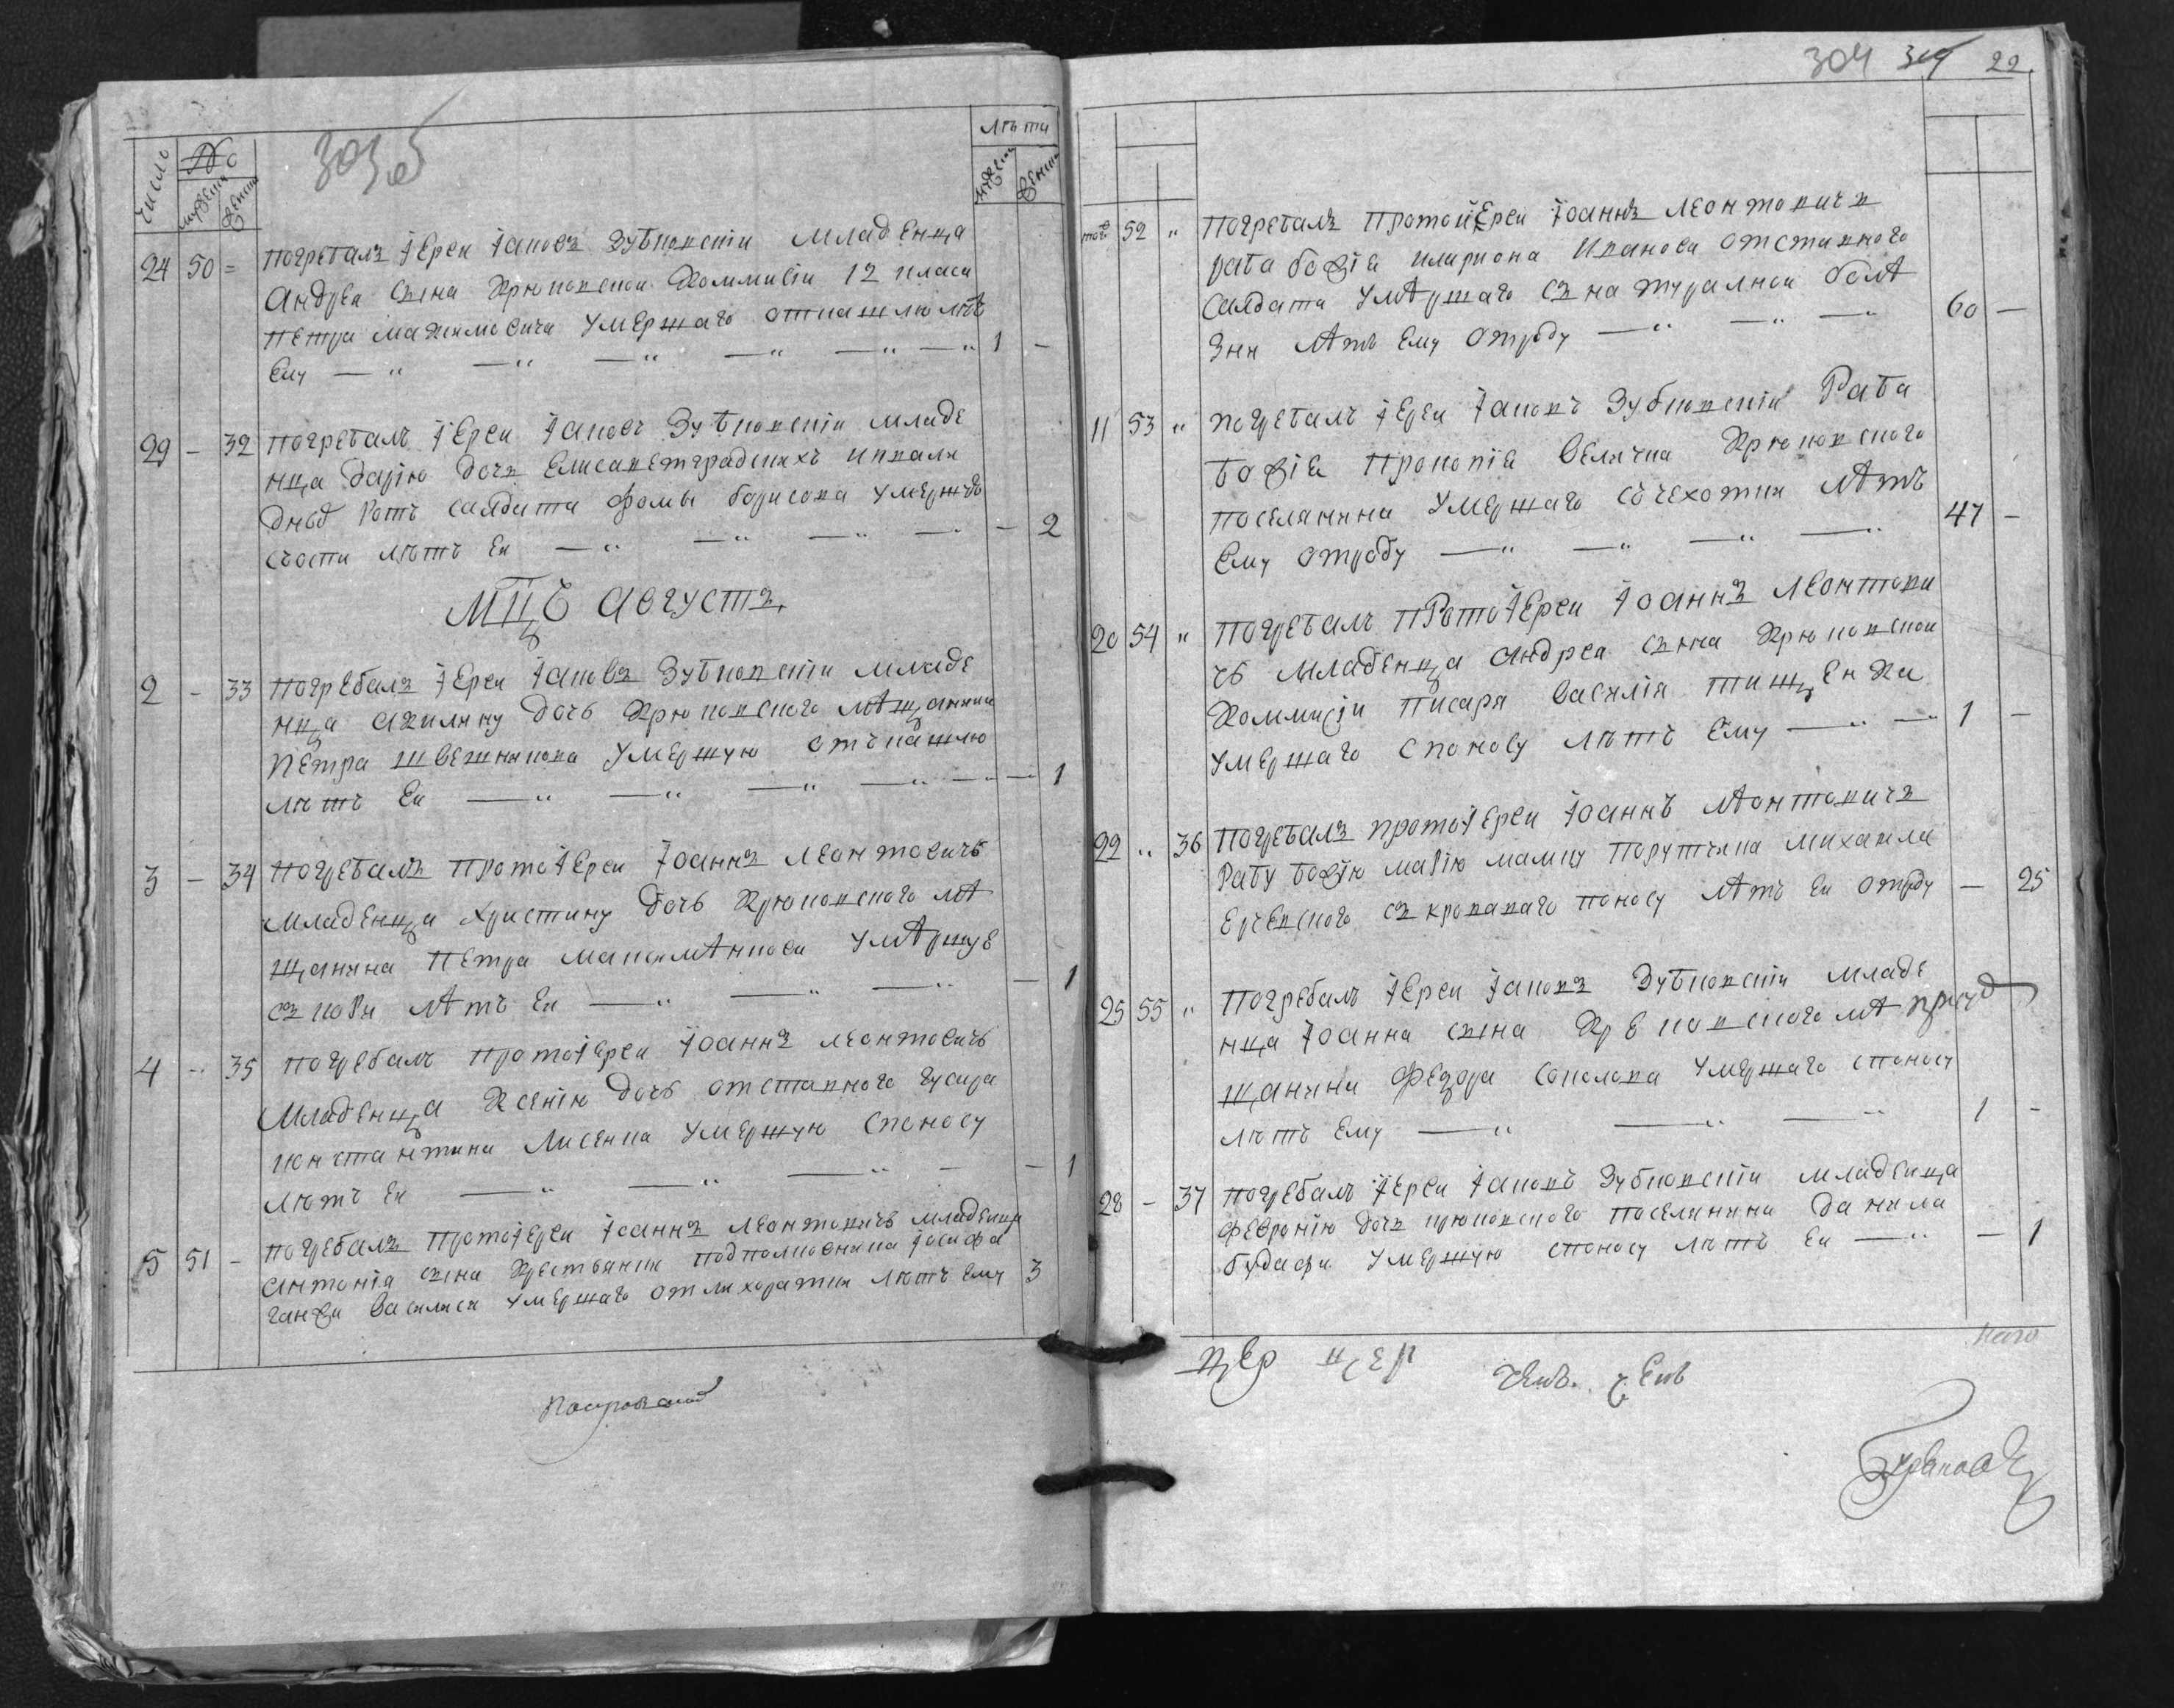 303 об
Число № мужеска женска
Лѣта мужеска женска
24 50 = погребалъ Іерей Іаковъ Зубковскій младенца
Андрея сына Крюковской Коммисіи 12 класа
Петра Максимовича умершаго откашлю лѣтъ
Ему — " — " — " — " — " 1 —
29 — 32 погребалъ Іерей Іаковъ Зубковскій младе
нца Дарію дочь Елисаветградскихъ инвали
дныхъ ротъ салдата Фомы Борисова умершую
съоспи лѣтъ Ей — " — " — " — — 2
Мцъ Августъ.
2 — 33 погребалъ Іерей Іаковъ Зубковскій младе
нца Акилину дочь Крюковского мѣщанина
Петра Швешникова умершую отъкашлю
лѣтъ Ей — " — " — " — " — — 1
3 — 34 погребалъ протоіерей Іоаннъ Леонтовичъ
младенца Христину дочь Крюковского мѣ
щанина Петра умѣршую
съ кори лѣтъ Ей — " — " — " — 1
4 — 35 погребалъ протоіерей Іоаннъ Леонтовичъ
младенца Ксенію дочь отставного гусара
Константина Лисенка умершую споносу
лѣтъ Ей — " — " — " — — 1
5 51 — погребалъ протоіерей Іоаннъ Леонтовичъ младенца
Антонія сына Крестьянина подполковника Іосифа
Ганжи Василиса умершаго отлихоратки лѣтъ Ему 3
304 22.
тогожъ 52 " погребалъ протоіерей Іоаннъ Леонтовичъ
раба божія Илариона Иванова отставного
салдата умѣршаго съ натуралной болѣ
зни лѣтъ Ему отроду — " — " — 60 —
11 53 " погребалъ Іерей Іаковъ Зубковскій Раба
божія Прокопія Величка Крюковского
поселянина умершаго съчехотки лѣтъ
Ему отроду — " — " — " — 47 —
20 54 " погребалъ протоіерей Іоаннъ Леонтови
чъ младенца Андрея сына Крюковской
Коммисіи писаря Василія Тищенка
умершаго споносу лѣтъ Ему — " — 1 —
22 " 36 погребалъ протоіерей Іоаннъ Лѣонтовичъ
Рабу божію Марію мамку порутчика Михаила
съ кроваваго поносу лѣтъ Ей отроду — 25
25 55 " погребалъ Іерей Іаковъ Зубковскій младе
нца Іоанна сына Крюковского мѣ
щанина Федора Соколова умершаго споносу
лѣтъ Ему — " — " — " 1 —
28 — 37 погребалъ Іерей Іаковъ Зубковскій младенца
Февронію дочь крюковского поселянина Данила
умершую споносу лѣтъ Ей — " — 1